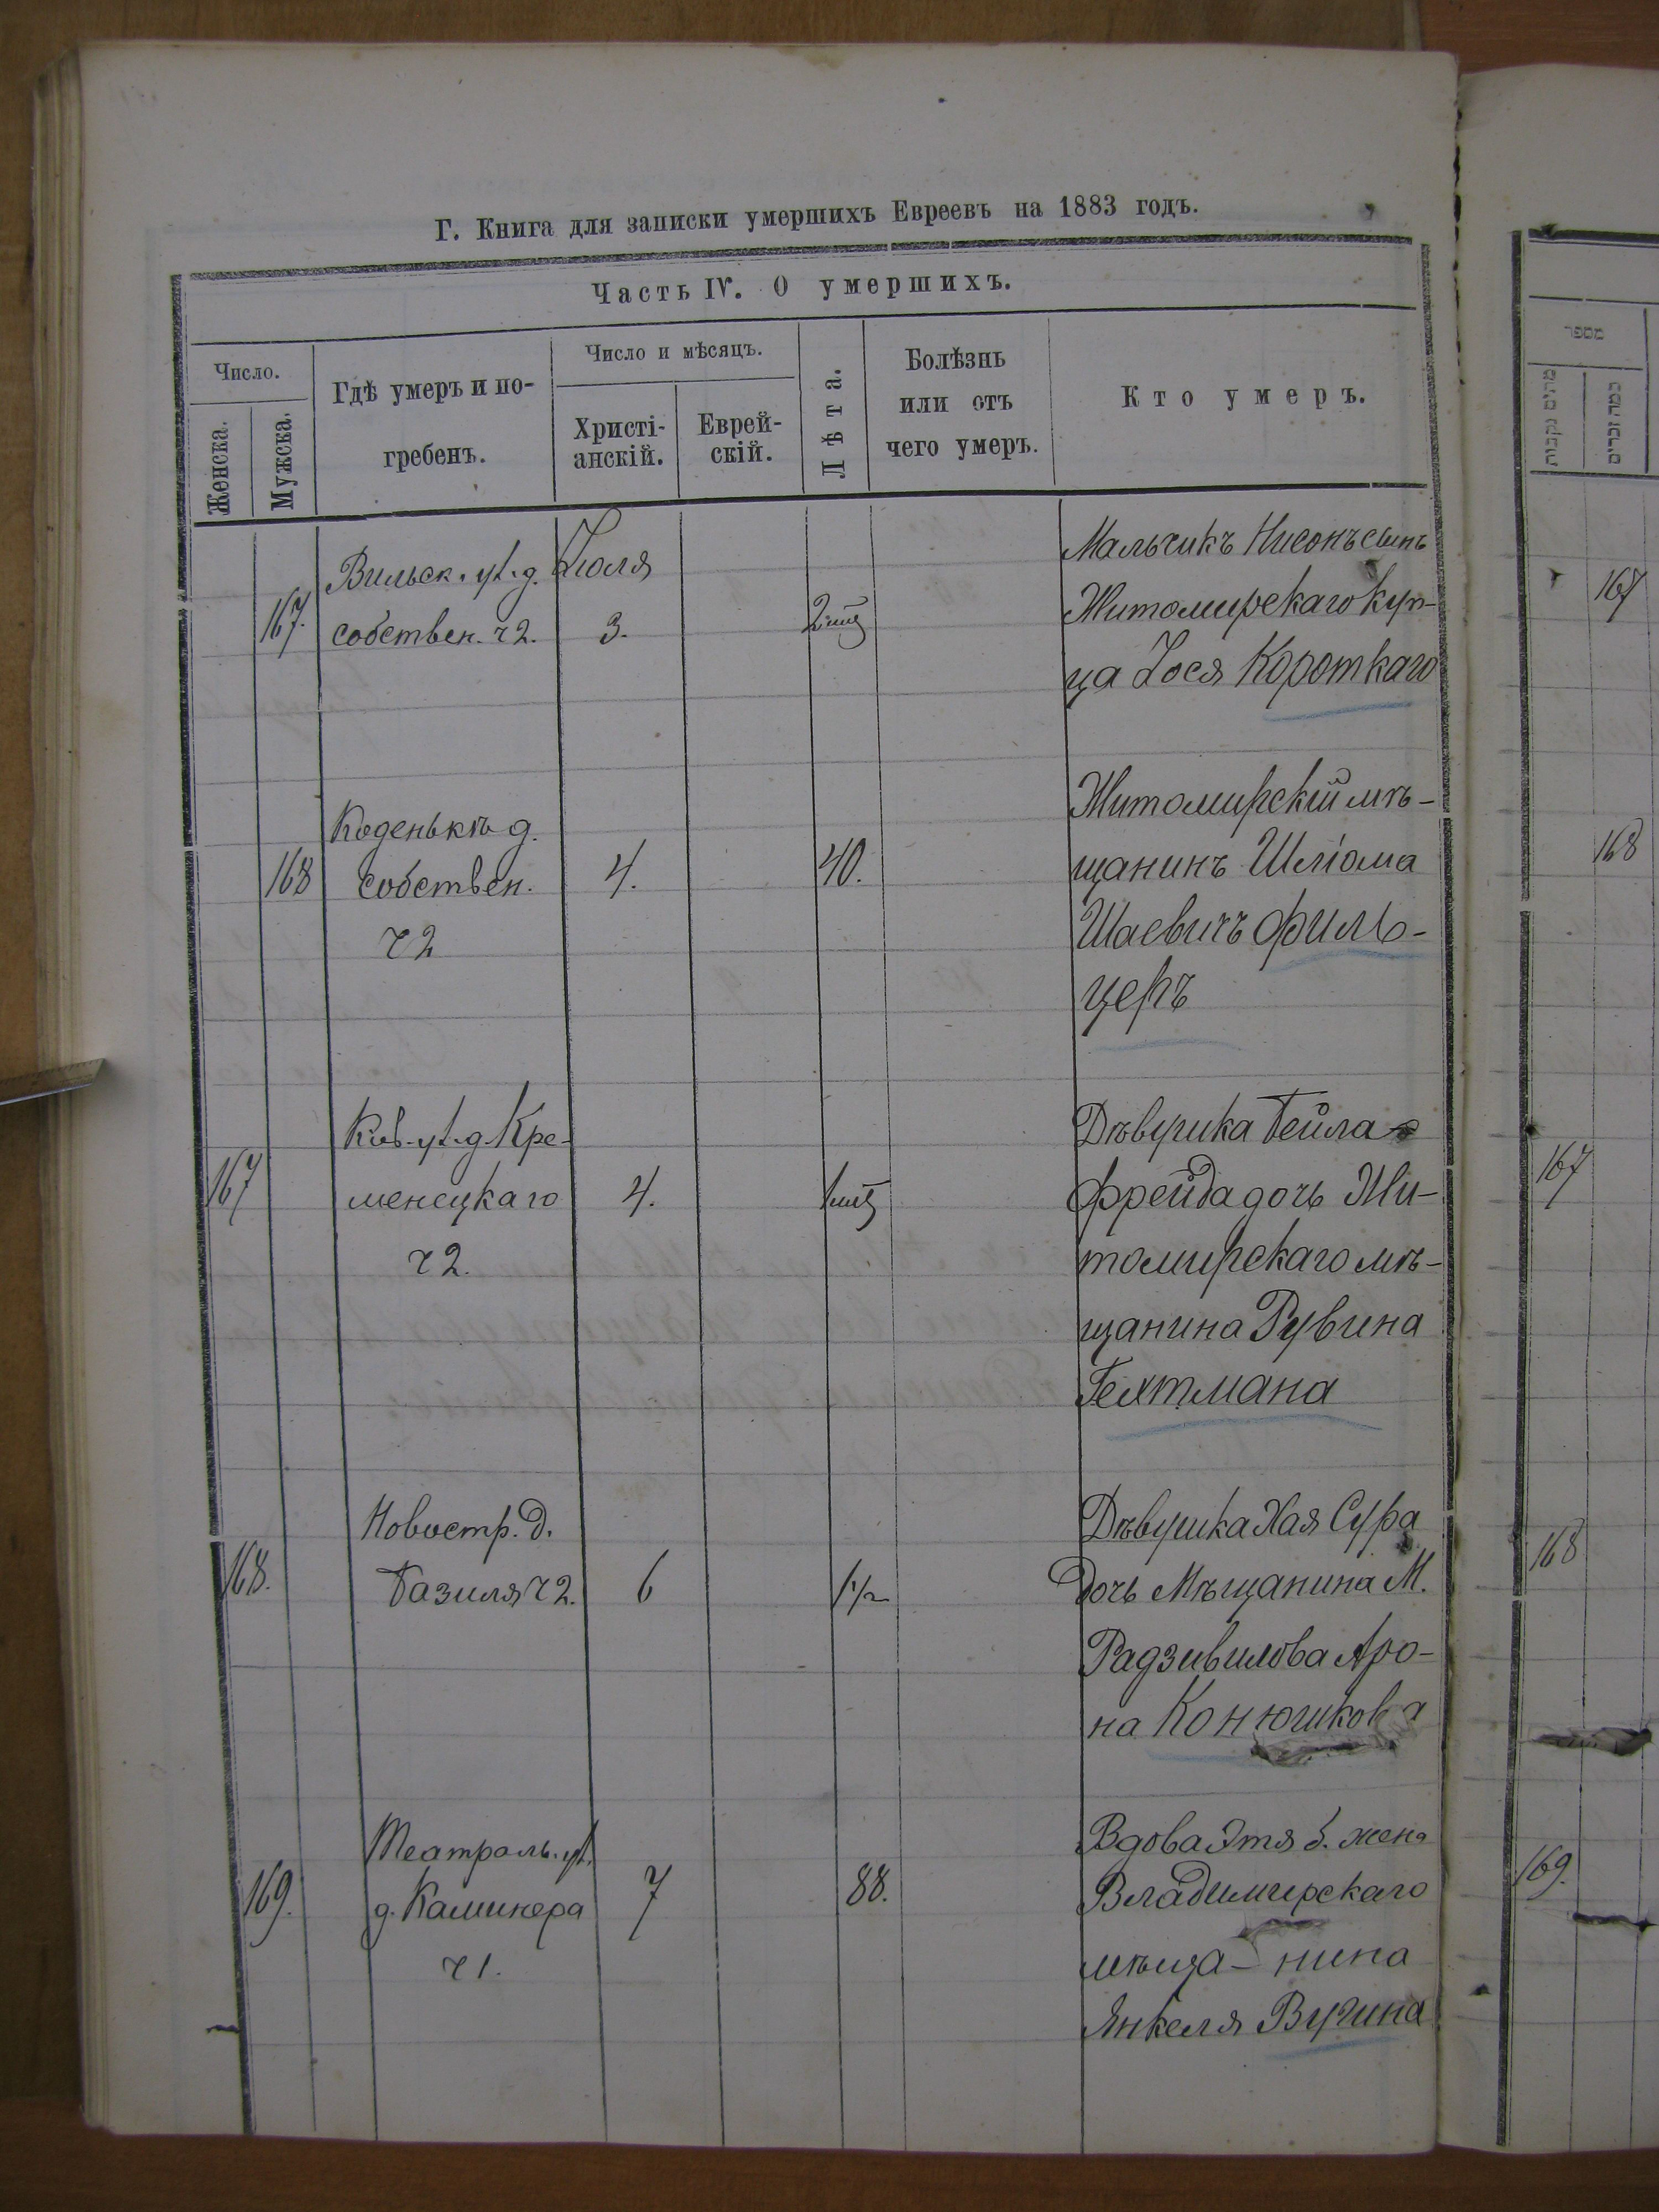 Г. Книга для записки умершихъ Евреевъ на 1883 годъ.
Часть IV. О умершихъ.
Число.
Женска.
Мужска.
Гдѣ умеръ и по-
гребенъ.
Число и мѣсяцъ.
Христі-
анскій.
Еврей-
скій.
Лѣта.
Болѣзнь
или отъ
чего умеръ.
Кто умеръ.
167.
Вильск. ул. д.
собствен. ч 2.
Іюля
3.
2 мц
Мальчикъ Нисонъ сынъ
Житомирскаго куп-
ца Іося Короткаго
168
Коденькѣ д.
собствен.
ч 2
4.
40.
Житомирскій мѣ-
щанинъ Шліома
Шаевичъ Филь-
церъ
167
Кіев. ул. д. Кре-
менецкаго
ч 2.
4.
1 мц
Дѣвушка Бейла
Фрейда дочь Жи-
томирскаго мѣ-
щанина Рувина
Гехтмана
168.
Новостр. д.
Базиля ч 2.
6
1 1/2
Дѣвушка Хая Сура
дочь Мѣщанина М.
Радзивилова Аро-
на Конюшкова
169.
Театраль. ул.
д. Каминера
ч 1.
7
88.
Вдова Этя б. жена
Владимирскаго
мѣща- нина
Янкеля Вугина
מספר
מתים נקבות
כמה זכרים
167
168
167
168
169.